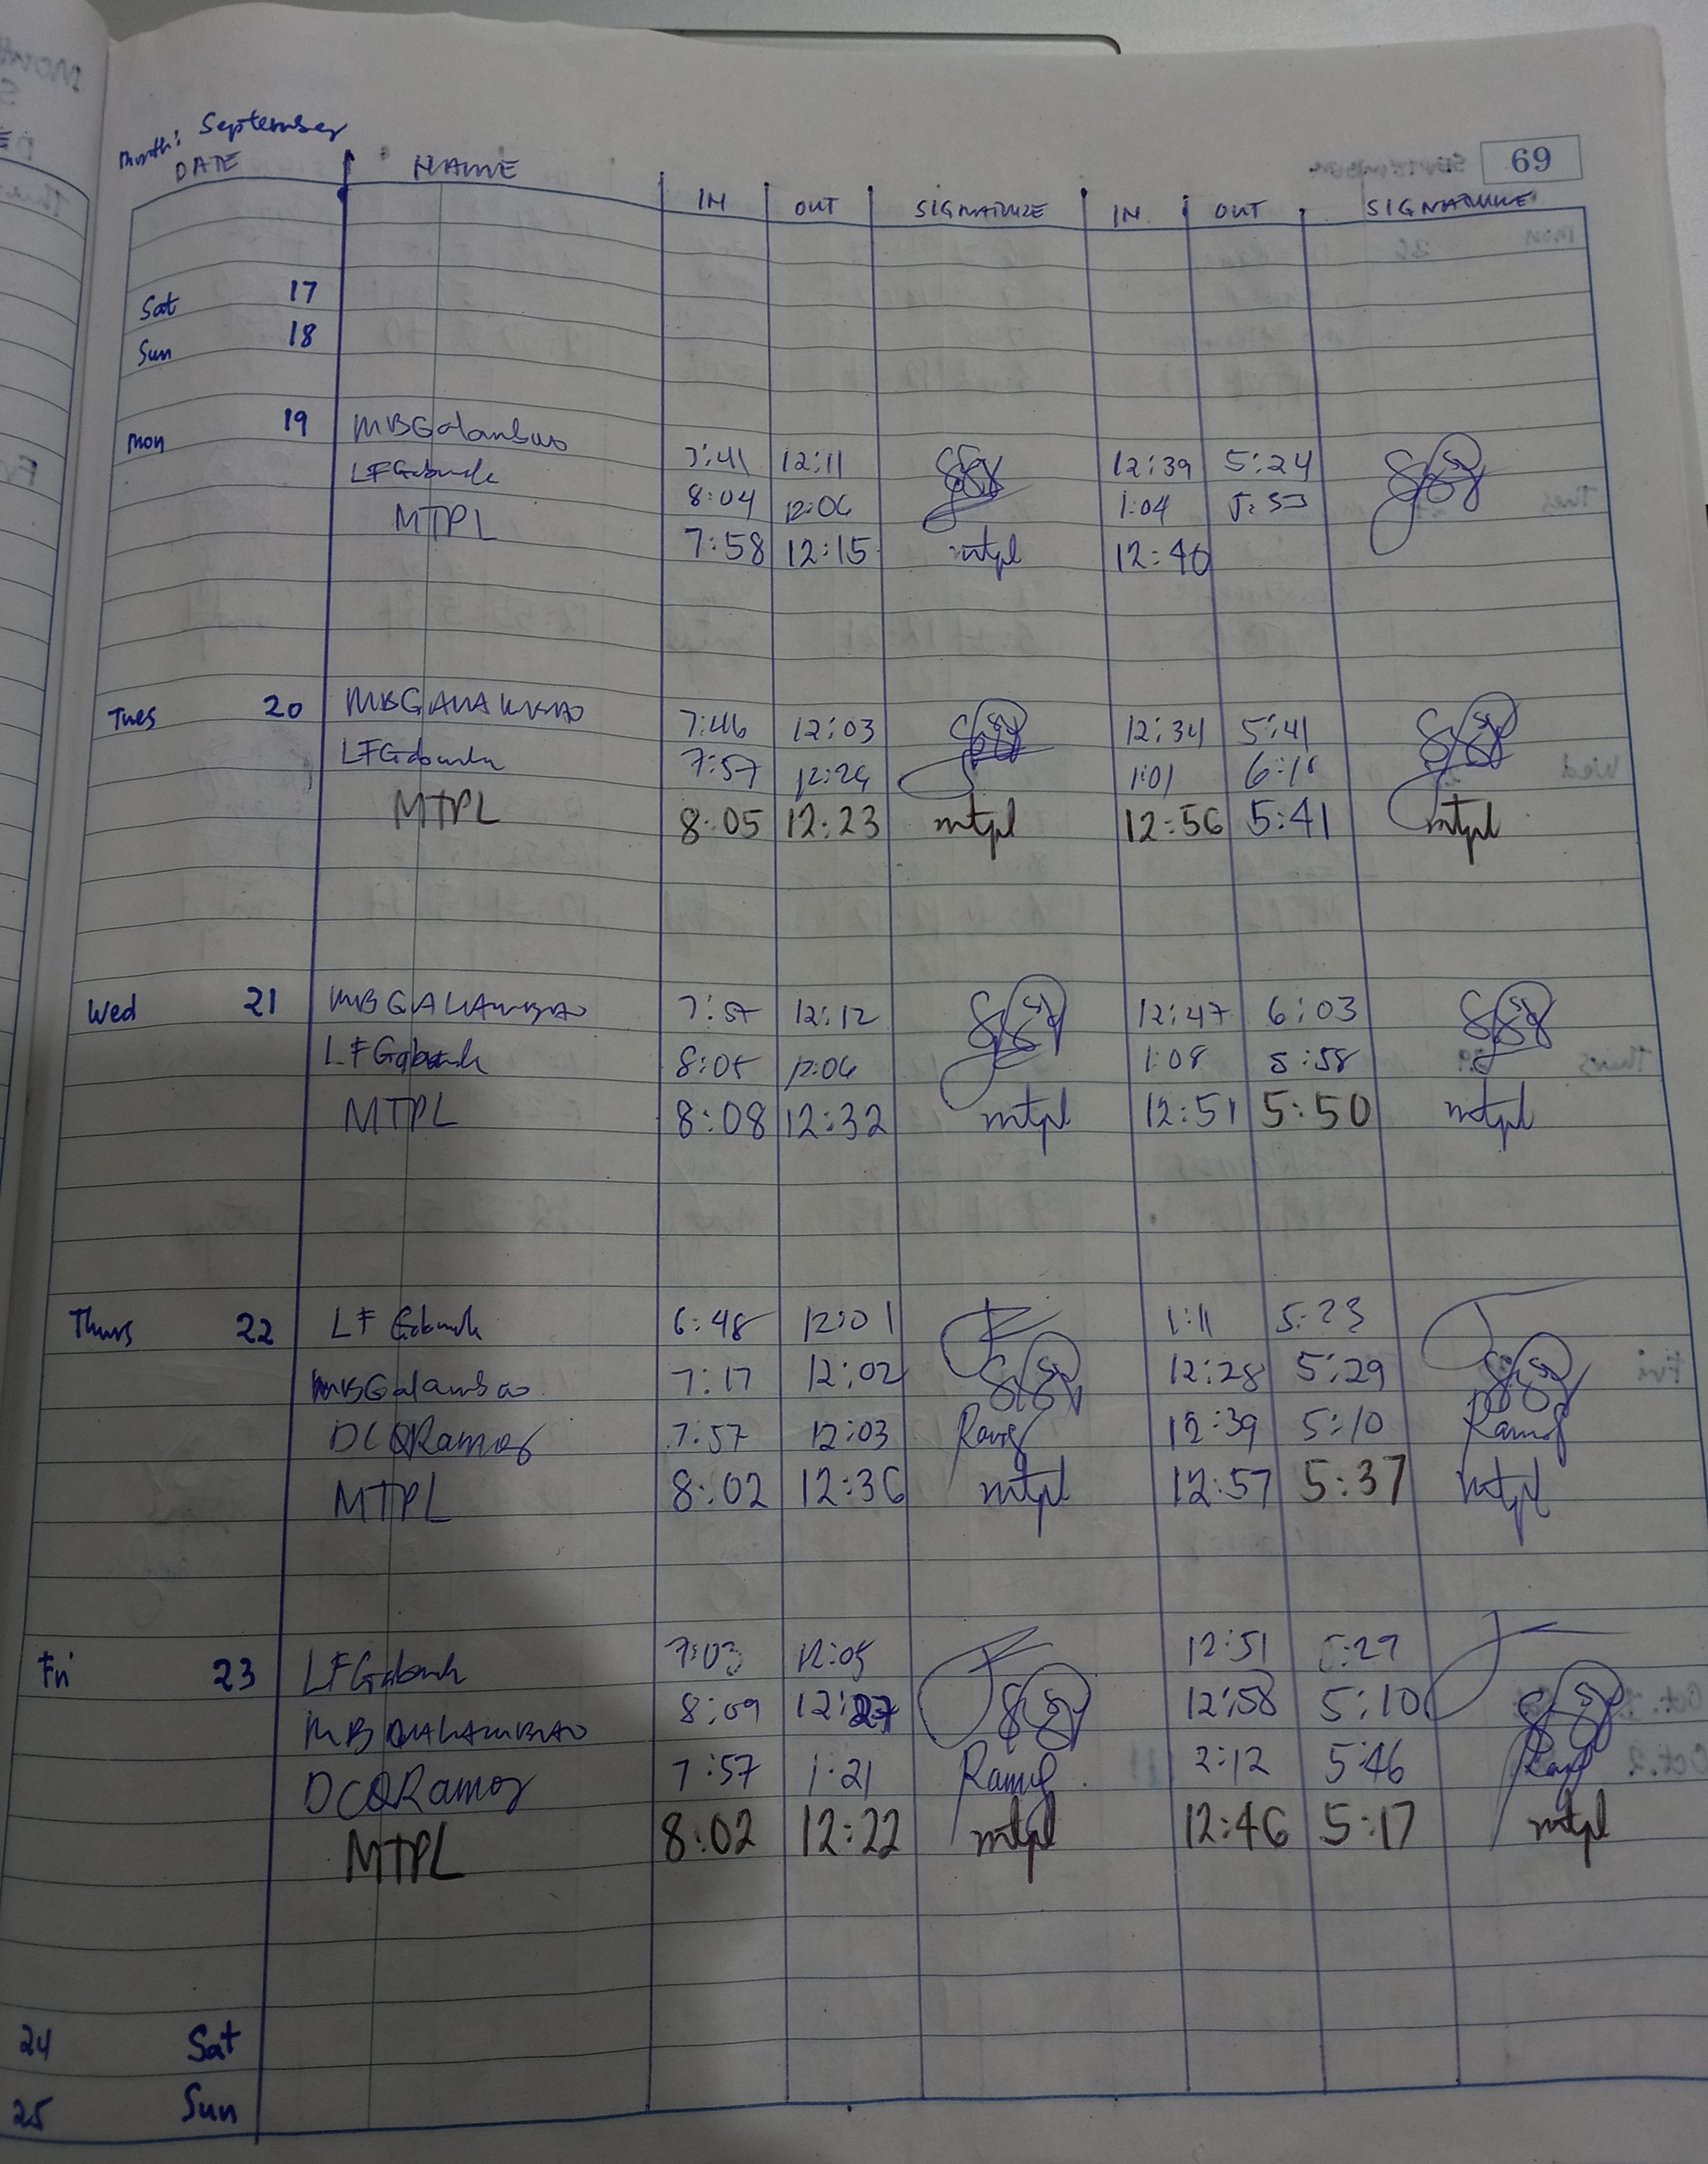 Month: September
69
DATE NAME IN OUT SIGNATURE IN OUT SIGNATURE
Sat 17
Sun 18
Mon 19 MBGalambao 7:41 12:11 12:39 5:24
8:04 12:06 1:04 5:53
MTPL 7:58 12:15 mtpl 12:40
Tues 20 7:46 12:03 12:34 5:41
7:57 1:01
MTPL 8:05 12:23 mtpl 12:56 5:41 mtpl
Wed 21 MBGALAMBAO 7:57 12:12 12:47 6:03
8:05 12:06 1:08 5:58
MTPL 8:08 12:32 mtpl 12:51 5:50 mtpl
Thurs 22 6:48 12:01 1:11 5:23
MBGalambao 7:17 12:02 12:28 5:29
DCQRamos 7:57 12:03 12:39 5:10 Ramos
MTPL 8:02 12:36 mtpl 12:57 5:37 mtpl
Fri 23 7:03 12:05 12:51 5:27
8:09 12:27 12:58 5:10
DCQRamos 7:57 1:21 2:12 5:46
MTPL 8:02 12:22 mtpl 12:46 5:17 mtpl
24 Sat
25 Sun